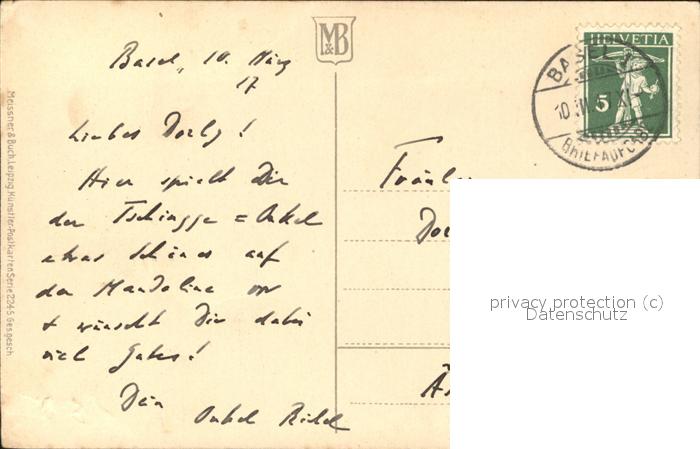 M&B
HELVETIA
5
BASEL
10.III.17.XI
BRIEFAUFGABE
Basel, 10. März
17
Liebes Dorly!
Hier spielt Dir
der Tschingge=Onkel
etwas Schönes auf
der Mandoline vor
+ wünscht Dir dabei
viel Gutes!
Dein
Onkel
Meissner & Buch, Leipzig, Künstler-Postkarten Serie 2345 Ges. gesch
privacy protection (c)
Datenschutz